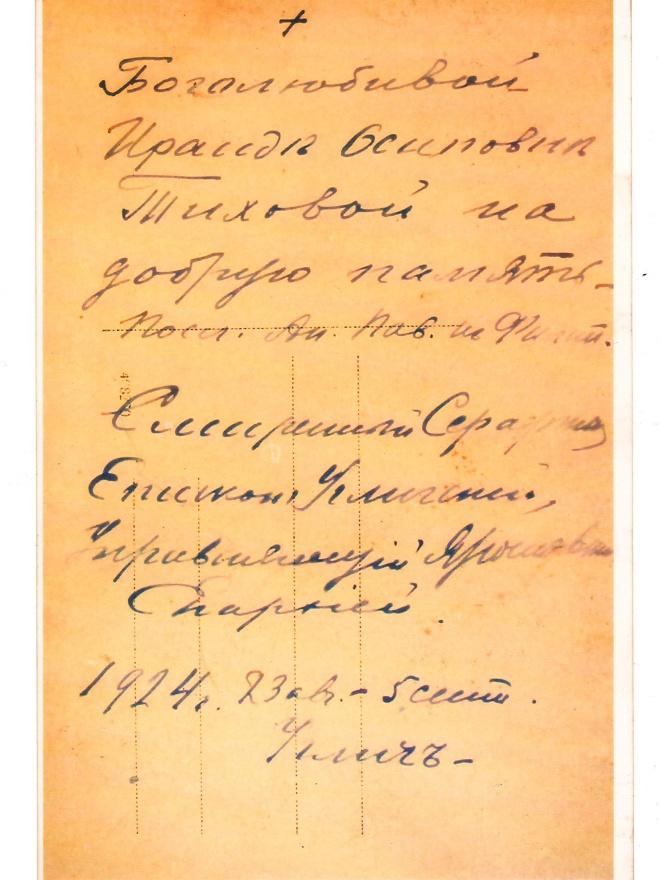 +
Боголюбивой
Ираидѣ Осиповнѣ
Тиховой на
добрую память
Посл. Ап. Пав. къ
Смиренный Серафим
Епископ Угличский,
Управляющій Ярославск
Епархіей.
1924 г. 23 авг. - 5 сент.
Угличъ -